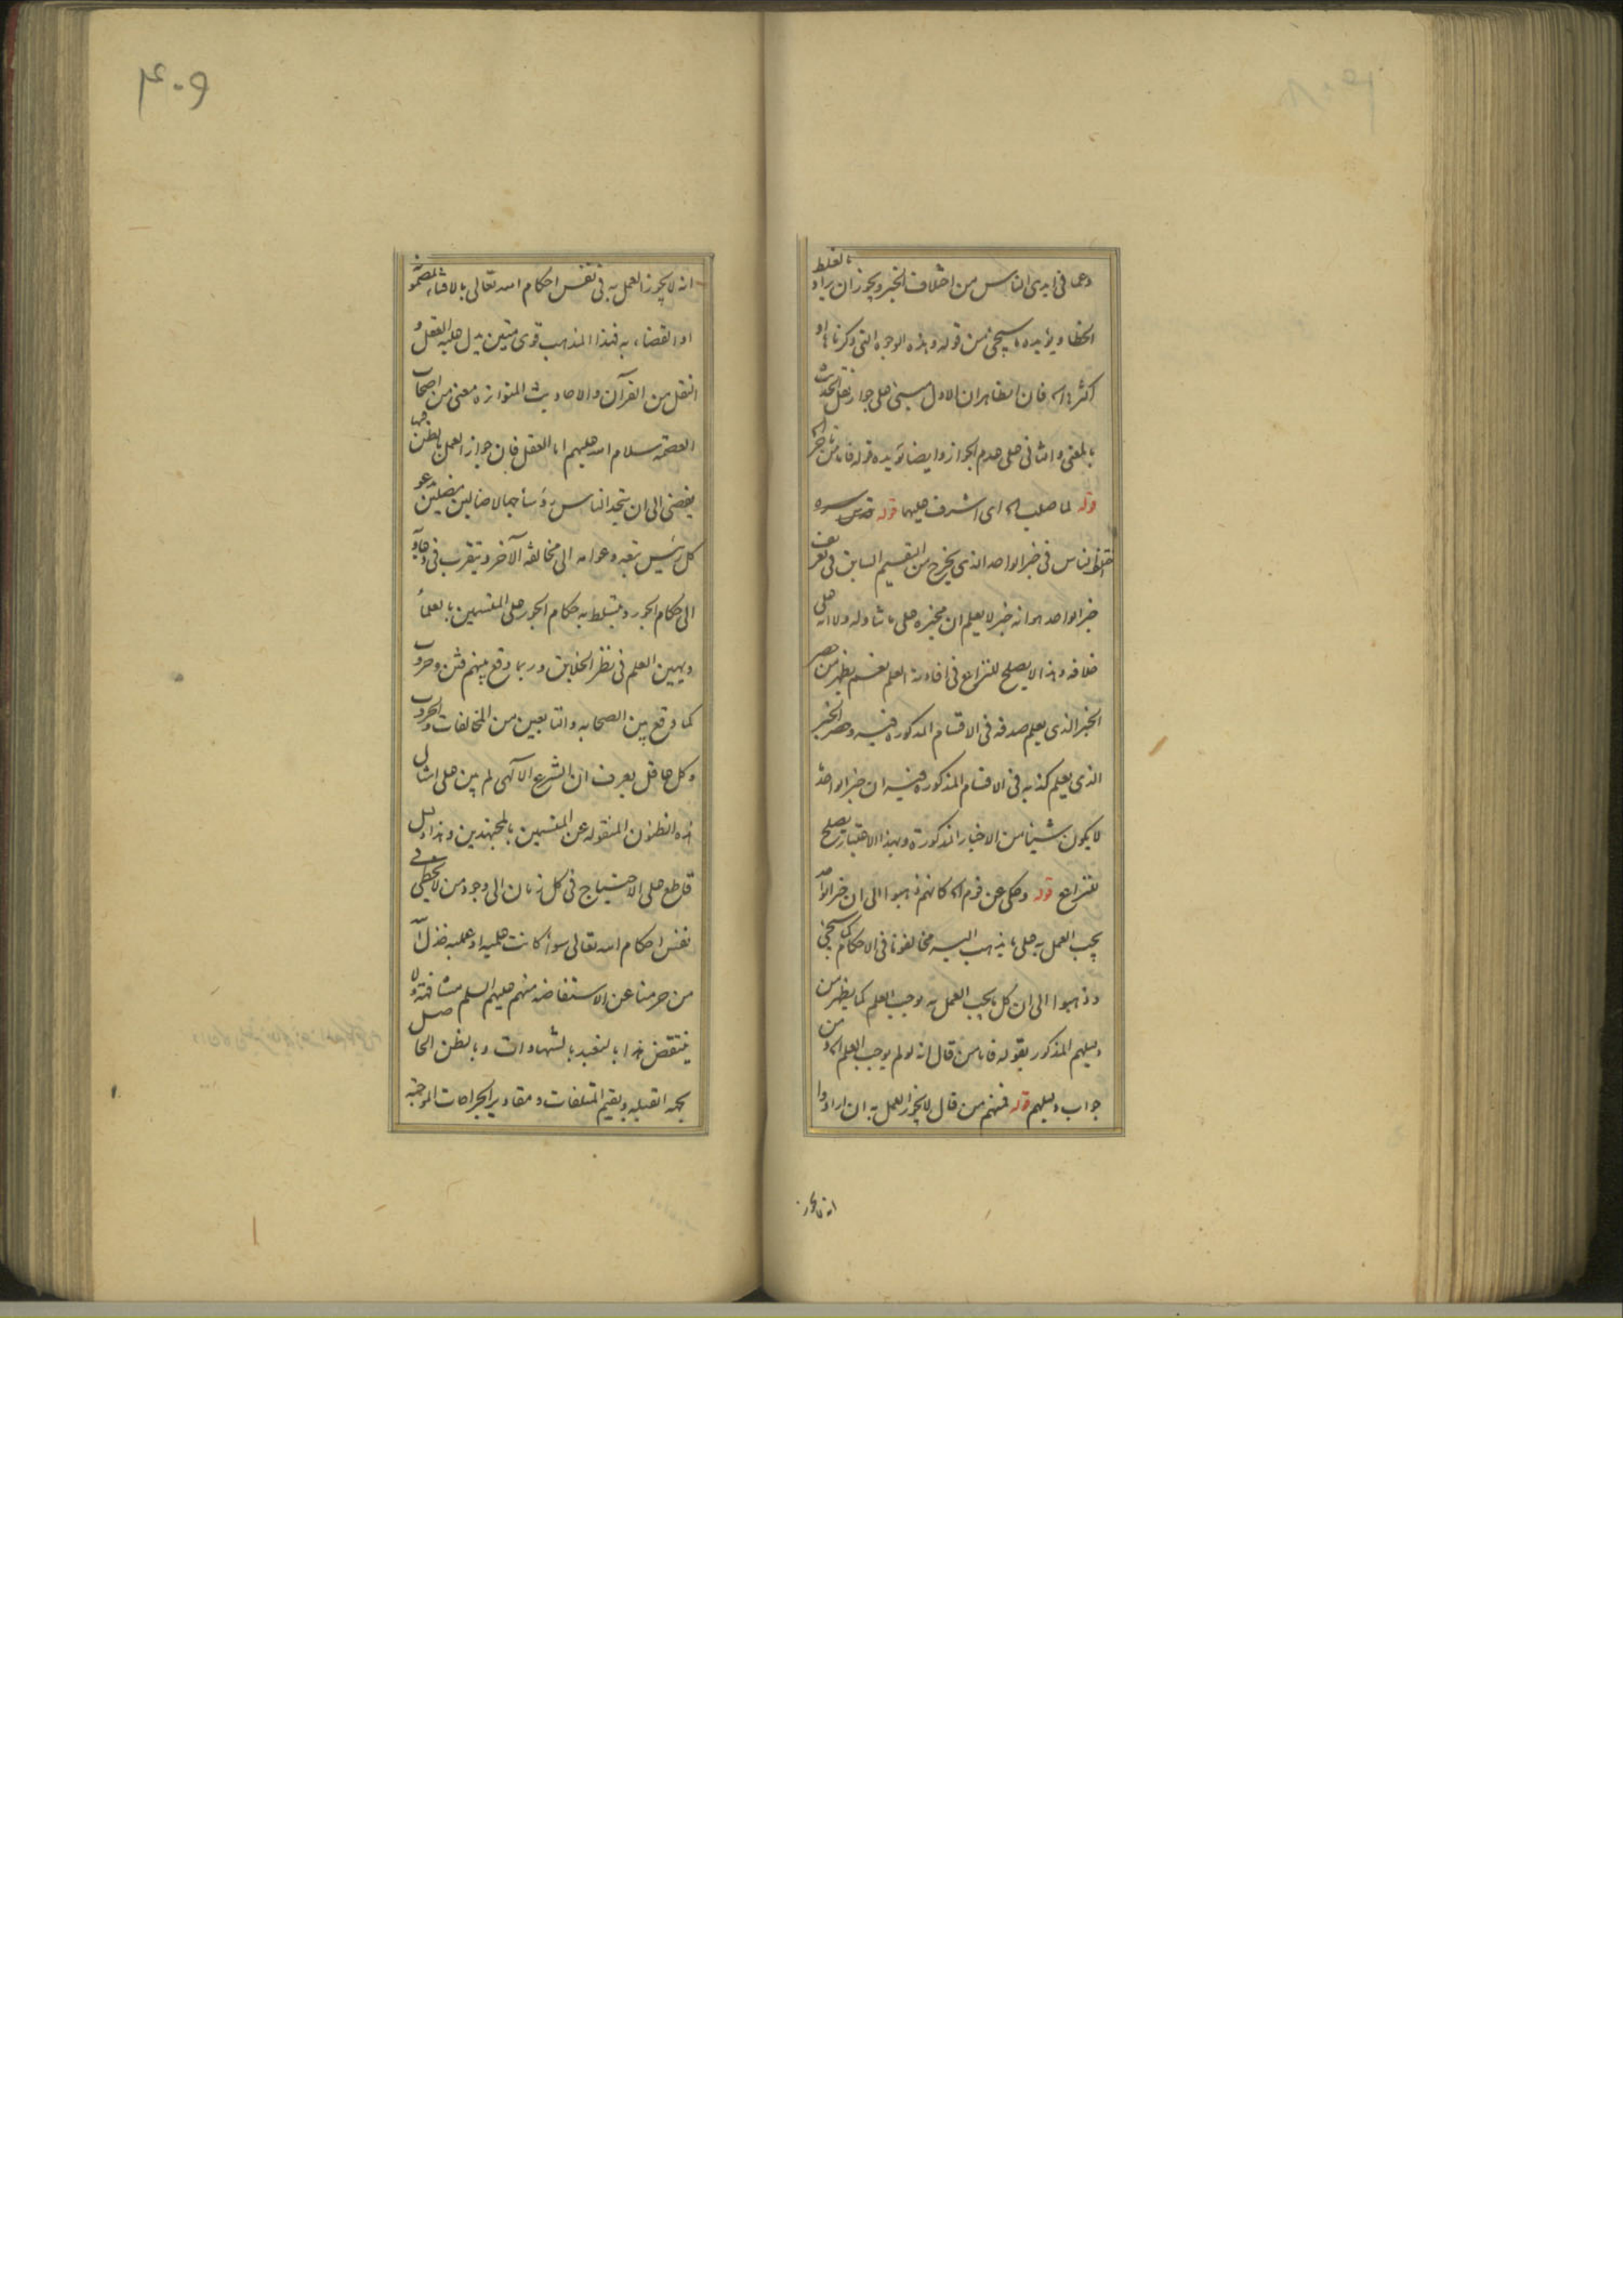 وعما في ايدى الناس من اختلاف الخبر ويجوز ان يراد بالغلط
الخطا ويؤيده ما سيجئ من قوله وهذه الوجوه التي ذكرناها او
اكثرها اه فان الظاهر ان الاول مبنى على جواز نقل الحديث
بالمعنى والثاني على عدم الجواز وايضا يؤيده قوله فاما من
قوله لما صلب اه اى اشرف عليهما قوله قدس سره
اختلف الناس في خبر الواحد الذى يخرج من التقسيم السابق في تعريف
خبر الواحد هو انه خبر لا يعلم ان مخبره على ما تناوله ولا انه على
خلافه وهذا لا يصلح للنزاع في افادته العلم نعم يظهر من حصر
الخبر الذى يعلم صدقه في الاقسام المذكورة فيه وحصر الخبر
الذى يعلم كذبه في الاقسام المذكورة فيه ان خبر الواحد
لا يكون شيئا من الاخبار المذكورة وبهذا الاعتبار يصلح
للنزاع قوله وحكى عن قوم اه كانهم ذهبوا الى ان خبر الواحد
يجب العمل به على ما يذهب اليه مخالفونا في الاحكام كما سيجئ
وذهبوا الى ان كل ما يجب العمل به يوجب العلم كما يظهر من
دليلهم المذكور بقوله فاما من قال انه لو لم يوجب العلم اه ومن
جواب دليلهم قوله فمنهم من قال لا يجوز العمل به ان ارادوا
انه لا يجوز
۴۰۹
انه لا يجوز العمل به في نفس احكام الله تعالى بالافتاء
او القضاء به فهذا المذهب قوى متين يدل عليه العقل و
النقل من القرآن والاحاديث المتواترة معنى من اصحاب
العصمة سلام الله عليهم اما العقل فان جواز العمل بالظن فيها
يفضى الى ان يتخذ الناس رؤسا جهالا ضالين مضلين يدعو
كل رئيس تبعه وعوامه الى مخالفة الآخر ويتقرب في
الى حكام الجور ويتسلط به حكام الجور على المتسمين بالعلماء
ويهين العلم في نظر الخلايق وربما وقع بينهم فتن وحروب
كما وقع بين الصحابه والتابعين من المخالفات والحروب
وكل عاقل يعرف ان الشرع الالهى لم يبن على امثال
هذه الظنون المنقوله عن المتسمين بالمجتهدين وهذا دليل
قاطع على الاحتياج في كل زمان الى وجود من لا يخطى في
نفس احكام الله تعالى سواء كانت علمية او عملية خذل الله
من حرمنا عن الاستفاضه منهم عليهم السلم مشافهة ولا
ينتقض هذا بالتعبد بالشهادات وبالظن الحاصل
بجهة القبله وبقيم المتلفات ومقادير الجراحات الموجبة